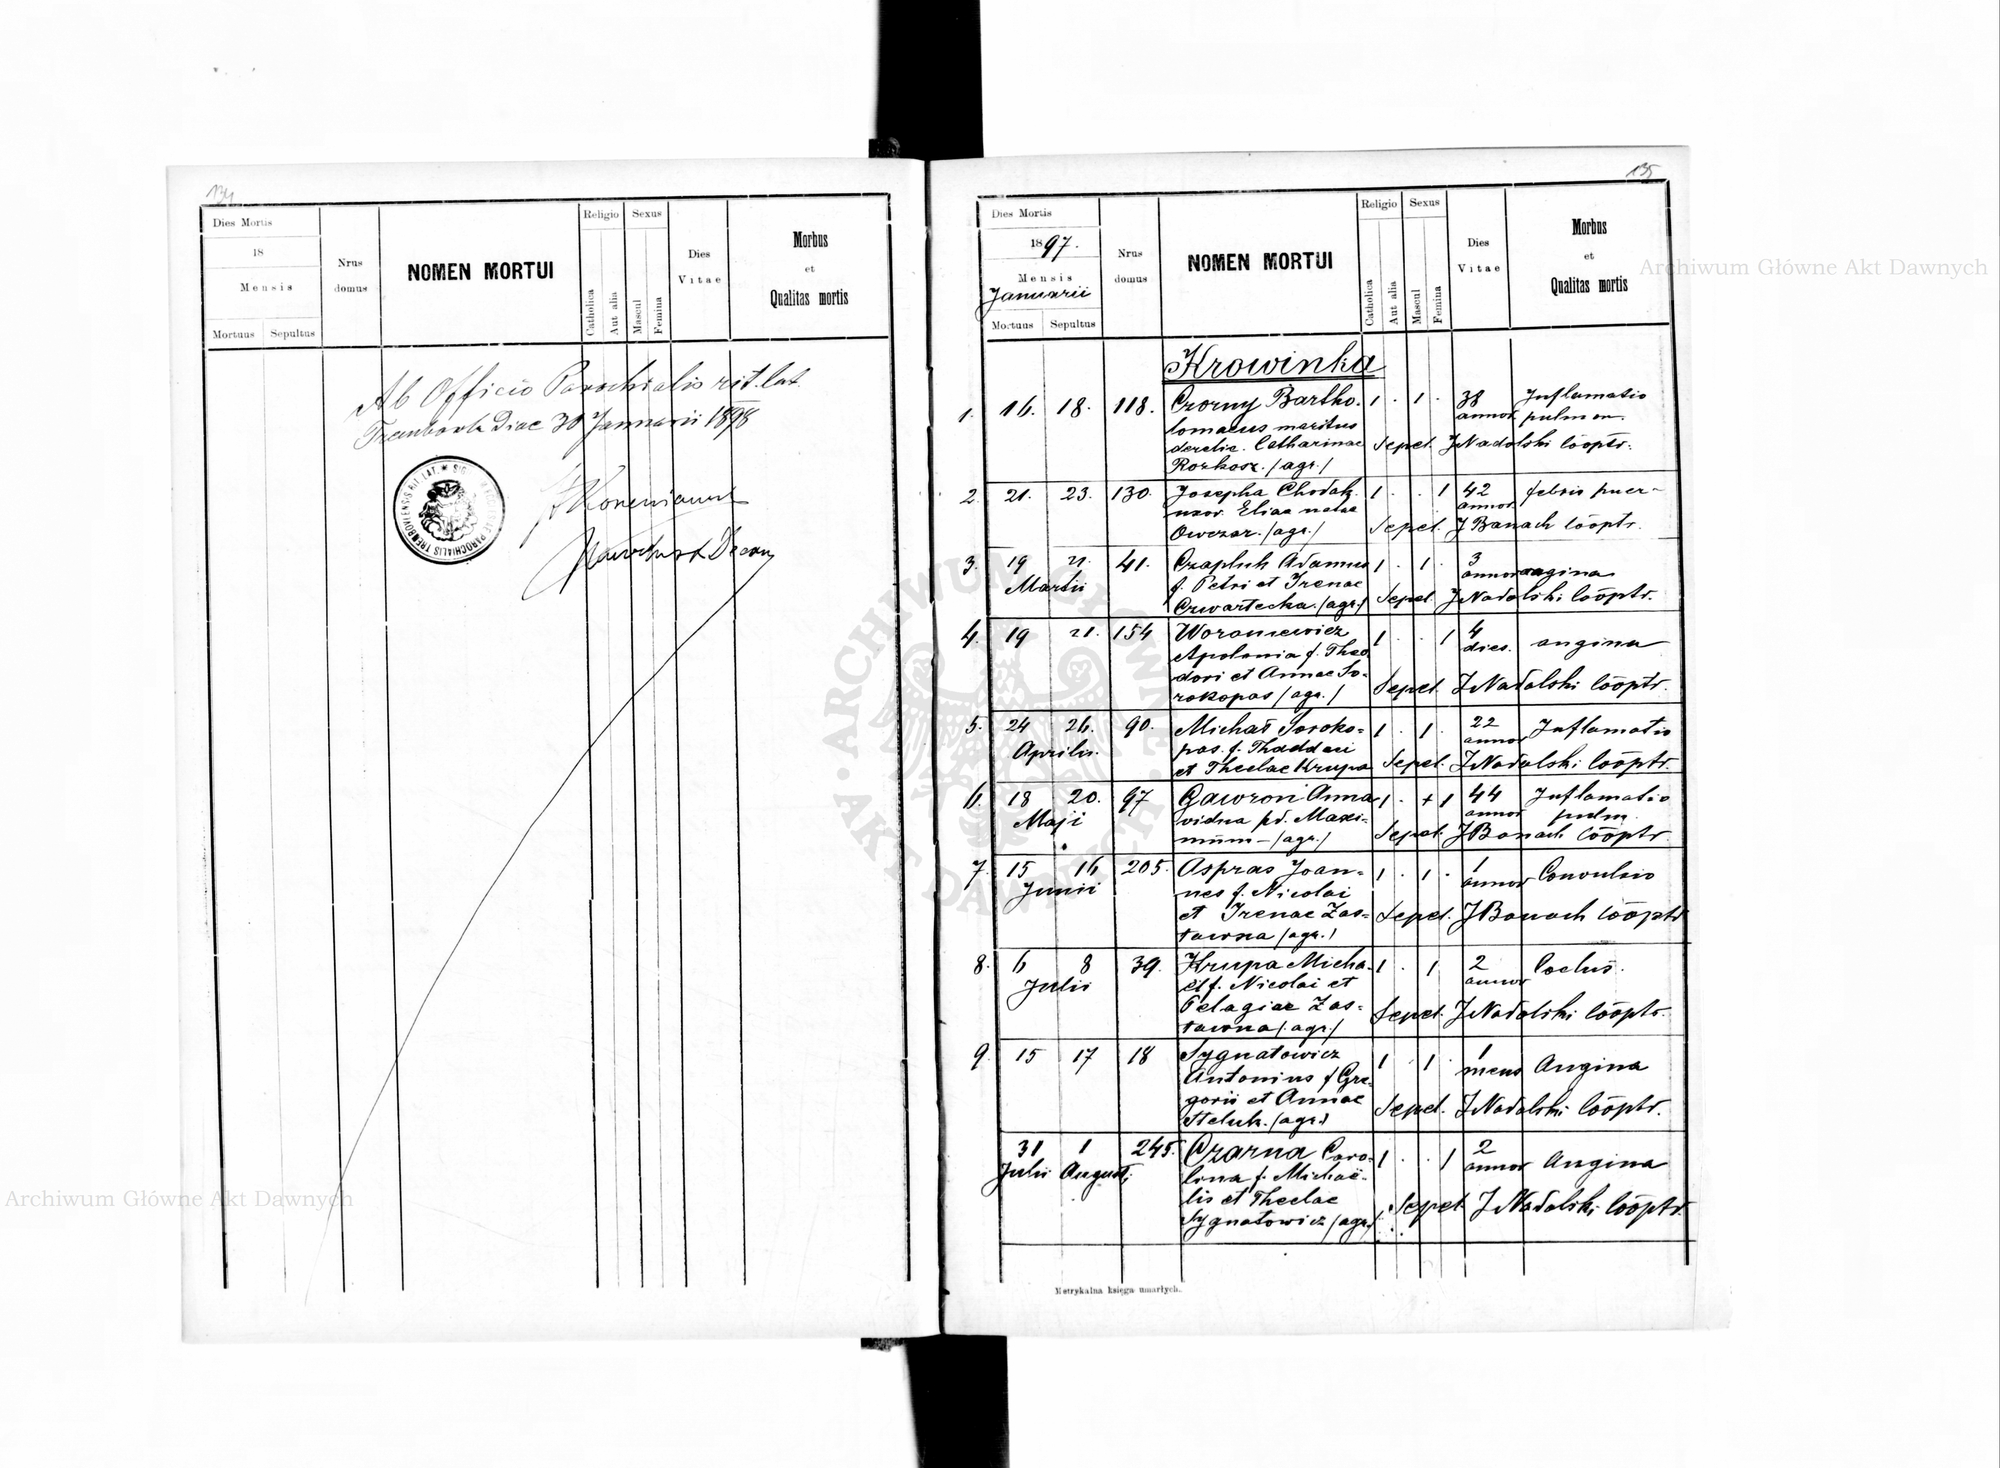 134
Dies Mortis
18
Mensis
Mortuus Sepultus
Nrus domus
NOMEN MORTUI
Religio
Catholica
Aut alia
Sexus
Mascul
Femina
Dies Vitae
Morbus
et
Qualitas mortis
Ab Officio Parochialis rit. lat.
Trembowla Diae 30 Januarii 1898
135
Dies Mortis
1897.
Mensis
Januarii
Mortuus Sepultus
Nrus domus
NOMEN MORTUI
Religio
Catholica
Aut alia
Sexus
Mascul
Femina
Dies Vitae
Morbus
et
Qualitas mortis
Krowinka
1. 16. 18. 118. Czorny Bartho- 1 . 1 . 38 Inflamatio
lomaeus maritus annor. pulmon.
derelic. Catharinae Sepel. J Nadolski Cooptr.
Rozkosz. /agr./
2. 21. 23. 130. Josepha Chodak. 1 . . 1 42 febris puer-
uxor. Eliae natae annor.
Owczar. /agr./ Sepel. J Banach Cooptr.
3. 19 21. 41. Czapluk Adamus 1 . 1 . 3
Martii f. Petri et Irenae annor angina
Czwartecka. /agr./ Sepel. J Nadolski Cooptr.
4. 19 21. 154 Woroniewicz 1 . . 1 4 angina
Apolonia f. Theo- dies.
dori et Annae So-
rokopas /agr./ Sepel. J Nadolski Cooptr.
5. 24 26. 90. Michał Soroko- 1 . 1 . 22 Inflamatio
Aprilis. pas. f. Thaddaei annor
et Theclae Krupa Sepel. J Nadolski Cooptr.
6. 18 20. 97 Gawroń Anna 1 . + 1 44 Inflamatio
Maji vidua pd. Maxi- annor pulm.
mum - /agr./ Sepel. J Banach Cooptr.
7. 15 16 205. Aspras Joan- 1 . 1 . 1 Convulsio
Junii nes f. Nicolai annor
et Irenae Zas- Sepel. J Banach Cooptr
tawna /agr./
8. 6 8 39. Krupa Micha- 1 . 1 2
Julii el f. Nicolai et annor
Pelagiae Zas- Sepel. J Nadolski Cooptr.
tawna /agr./
9. 15 17 18 Sygnatowicz 1 . 1 . 1 Angina
Antonius f Gre- mens
gorii et Annae Sepel. J Nadolski Cooptr.
/agr./
31 1 245. Czarna Caro- 1 . . 1 2 Angina
Julii Augusti lina f. Michaë- annor
lis et Theclae Sepel J Nadolski Cooptr.
Sygnatowicz /agr./
Metrykalna księga umarłych.
ARCHIWUM GŁÓWNE AKT DAWNYCH
Archiwum Główne Akt Dawnych
Archiwum Główne Akt Dawnych